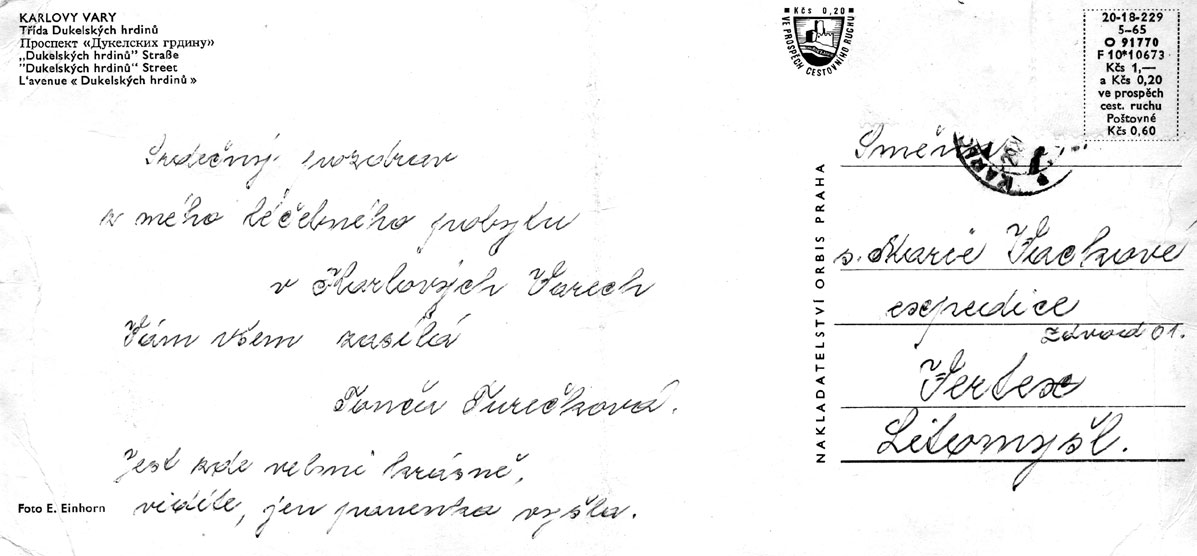 KARLOVY VARY
Třída Dukelských hrdinů
Проспект «Дукелских грдину»
„Dukelských hrdinů" Straße
"Dukelských hrdinů" Street
L'avenue « Dukelských hrdinů »
Srdečný pozdrav
z mého léčebného pobytu
v Karlových Varech
Vám všem zasílá
Turečková.
Jest zde velmi krásně,
vidíte, jen panenka vyšla.
Foto E. Einhorn
NAKLADATELSTVÍ ORBIS PRAHA
Kčs 0,20
VE PROSPĚCH CESTOVNÍHO RUCHU
20-18-229
5-65
O 91770
F 10*10673
Kčs 1,—
a Kčs 0,20
ve prospěch
cest. ruchu
Poštovné
Kčs 0,60
s. Marie
expedice
závod 01.
Vertex
Litomyšl.